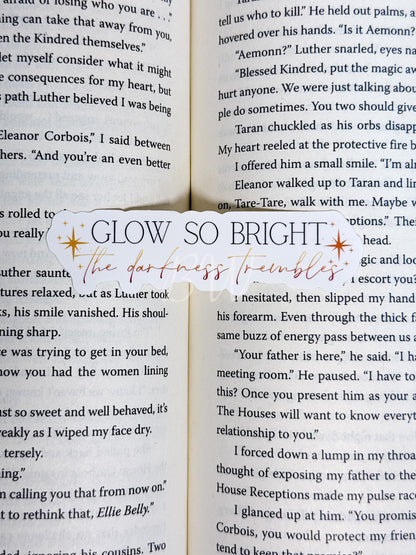 afraid of losing who you are . . ."
ng can take that away from you,
en the Kindred themselves."
let myself consider what it might
e consequences for my heart, but
s path Luther believed I was being
Eleanor Corbois," I said between
hers. "And you're an even better
s rolled to
you really
GLOW SO BRIGHT
the darkness trembles
uther saunte
tures relaxed, but as Luther took
ks, his smile vanished. His shoul-
ning sharp.
ce was trying to get in your bed,
now you had the women lining
ust so sweet and well behaved, it's
weakly as I wiped my face dry.
tersely.
ing."
n calling you that from now on."
t to rethink that, Ellie Belly."
ed, ignoring his cousins. Two
tell us who to kill." He held out palms, a
hovered over his hands. "Is it Aemonn?
"Aemonn?" Luther snarled, eyes na
"Blessed Kindred, put the magic aw
hurt anyone. We were just talking about
ple do sometimes. You two should give
Taran chuckled as his orbs disapp
My heart reeled at the protective fire b
I offered him a small smile. "I'm alr
Eleanor walked up to Taran and lin
on, Tare-Tare, walk with me. Maybe w
options." Their
head.
magic and loo
I escort you?
I hesitated, then slipped my hand
his forearm. Even through the thick fa
same buzz of energy pass between us a
"Your father is here," he said. "I ha
meeting room." He paused. "I have to
this? Once you present him as your a
The Houses will want to know everyt
relationship to you."
I forced down a lump in my throa
thought of exposing my father to the
House Receptions made my pulse rac
I glanced up at him. "You promise
Corbois, you would protect my frien
tend to keep that promise?"